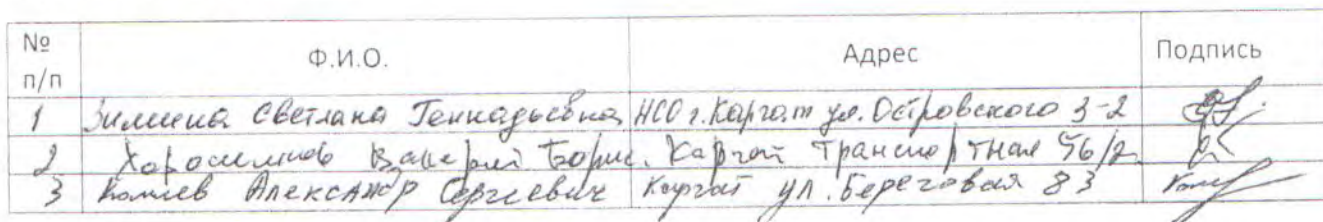 № п/п Ф.И.О. Адрес Подпись
1 Зимина Светлана Геннадьевна НСО г. Каргат ул. Островского 3-2
2 Валерий Борис. Каргат Транспортная 56/2
3 Александр Сергеевич Каргат ул. Береговая 83